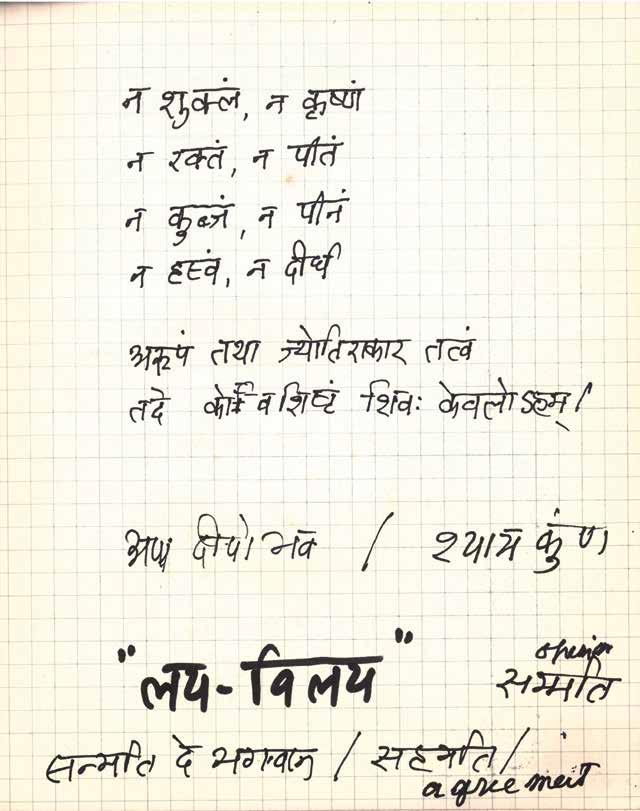 न शुक्लं, न कृष्णं
न रक्तं, न पीतं
न कुब्जं, न पीनं
न ह्रस्वं, न दीर्घं
अरूपं तथा ज्योतिराकार तत्वं
तदे शिवः केवलोऽहम्।
अप्प दीपो भव / श्याम
"लय-विलय"
opinion
सम्मति
सन्मति दे भगवान / सहमति /
agreement